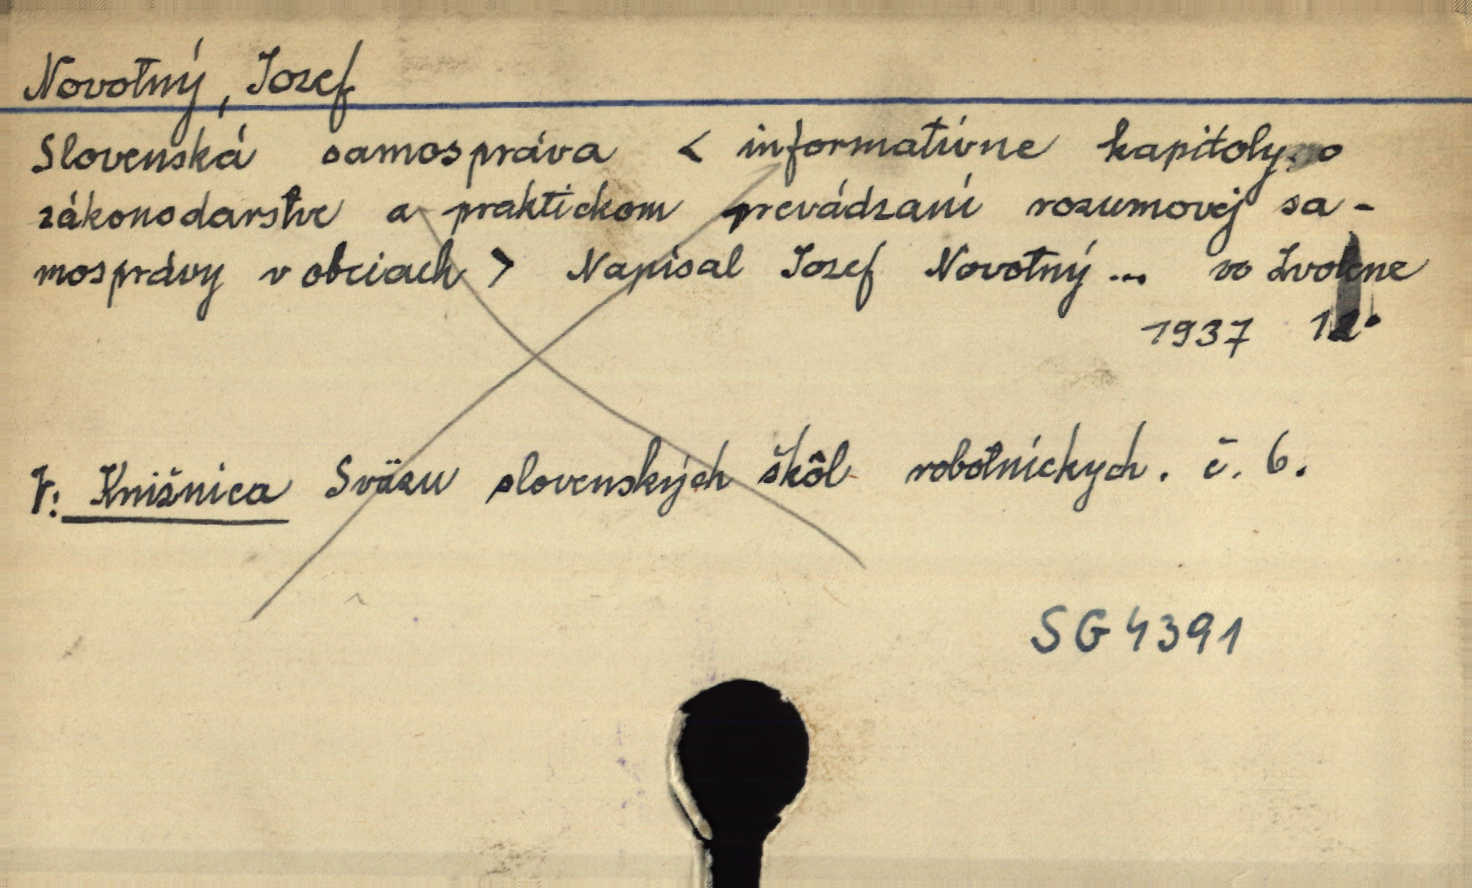 Novotný, Jozef
Slovenská samospráva < informatívne kapitoly o
zákonodarstve a praktickom prevádzaní rozumovej sa-
mosprávy v obciach > Napísal Jozef Novotný ... vo Zvolene
1937 12°
V: Knižnica Sväzu slovenských škôl robotníckych. č. 6.
SG 4391